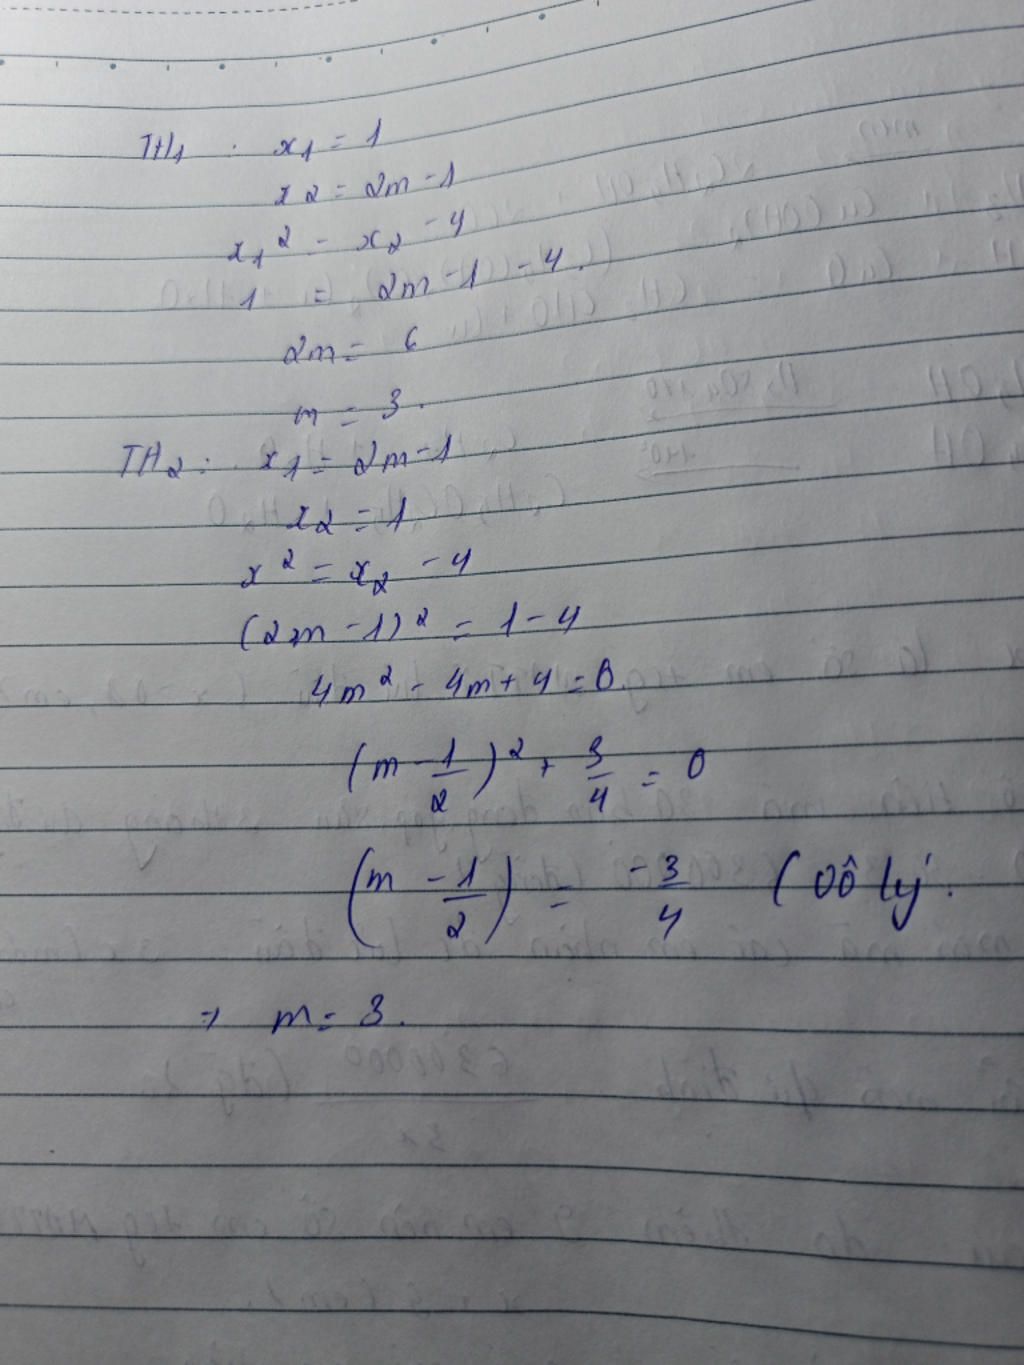 TH1 : x1 = 1
x2 = 2m - 1
x1² = x2 - 4
1 = 2m - 1 - 4.
2m = 6
m = 3.
TH2 : x1 = 2m - 1
x2 = 1
x² = x2 - 4
(2m - 1)² = 1 - 4
4m² - 4m + 4 = 0.
(m - 1/2)² + 3/4 = 0
(m - 1/2) = -3/4 (vô lý.
⇒ m = 3.